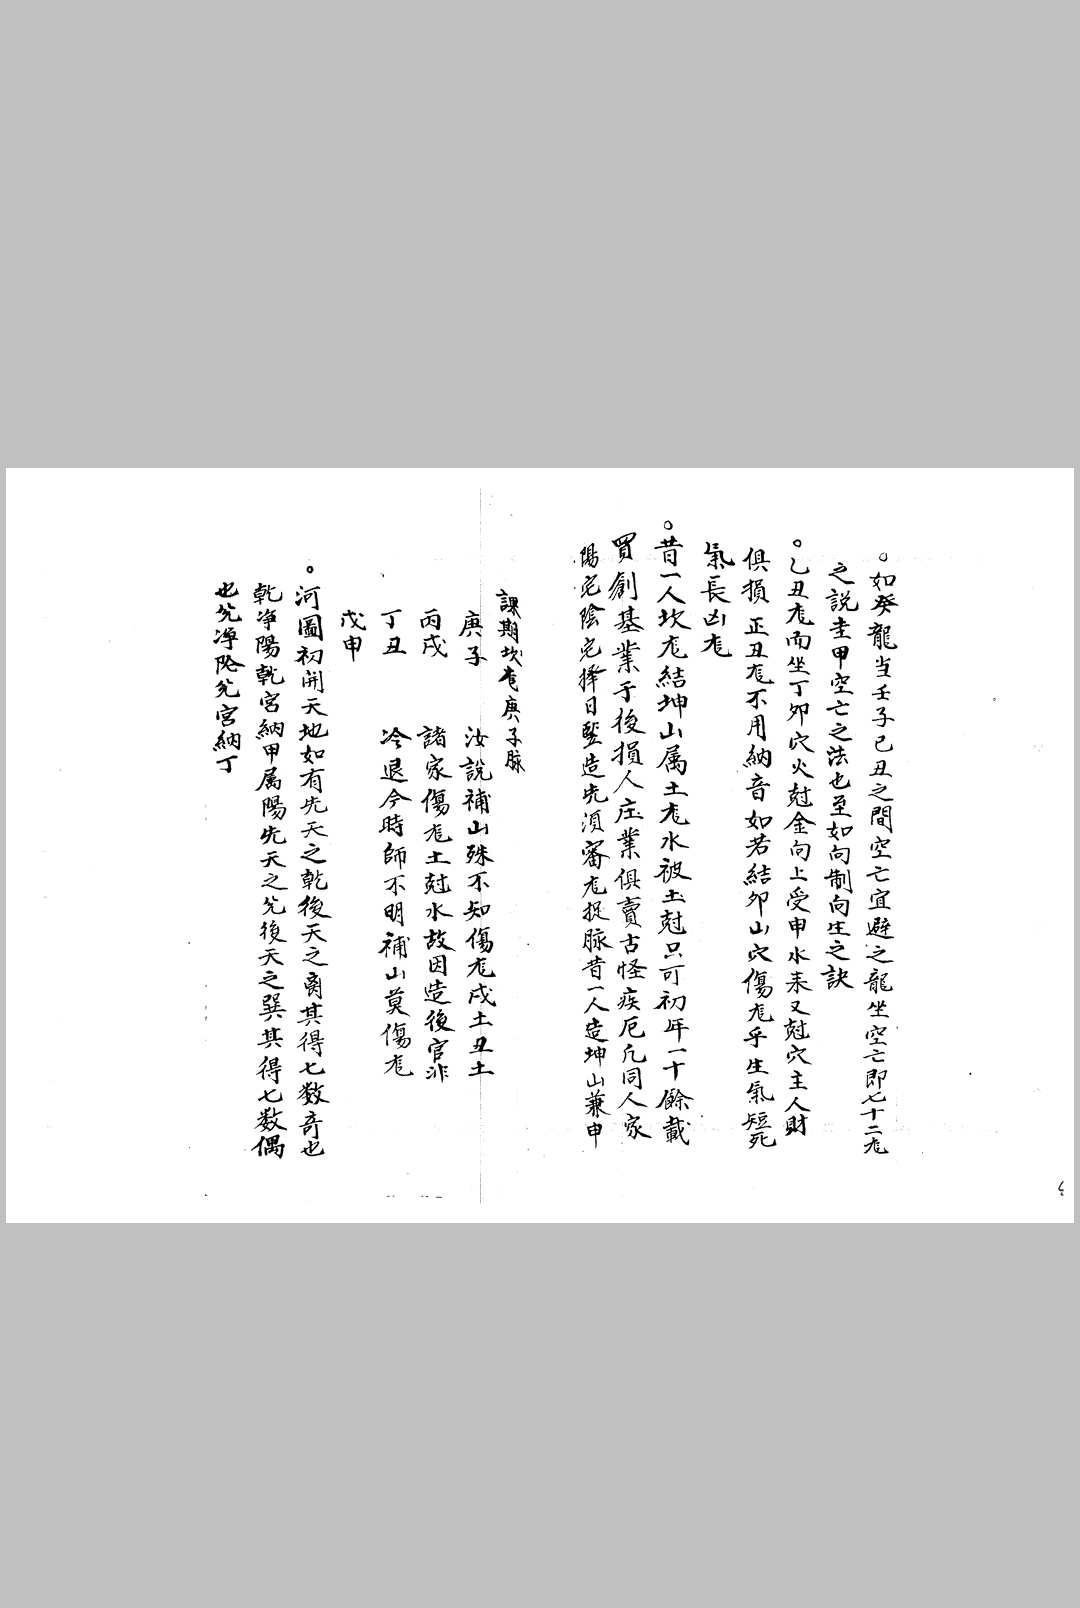 ○如癸龍当壬子己丑之間空亡宜避之龍坐空亡即七十二尨
之說圭甲空亡之法也至如向制向生之訣
○乙丑尨而坐丁卯穴火尅金向上受申水来又尅穴主人財
俱損正丑尨不用納音如若結卯山穴傷尨乎生氣短死
氣長凶尨
○昔一人坎尨結坤山属土尨水被土尅只可初年一十餘載
買創基業于後損人庄業俱賣古怪疾厄凢同人家
陽宅陰宅擇日豎造先須審尨捉脉昔一人造坤山兼申
課期坎尨庚子脉
庚子 汝說補山殊不知傷尨戌土丑土
丙戌 諸家傷尨土尅水故因造後官非
丁丑 冷退今時師不明補山莫傷尨
戊申
○河圖初開天地如有先天之乾後天之离其得七数奇也
乾净陽乾宮納甲属陽先天之兊後天之巽其得七数偶
也兊净陰兊宮納丁